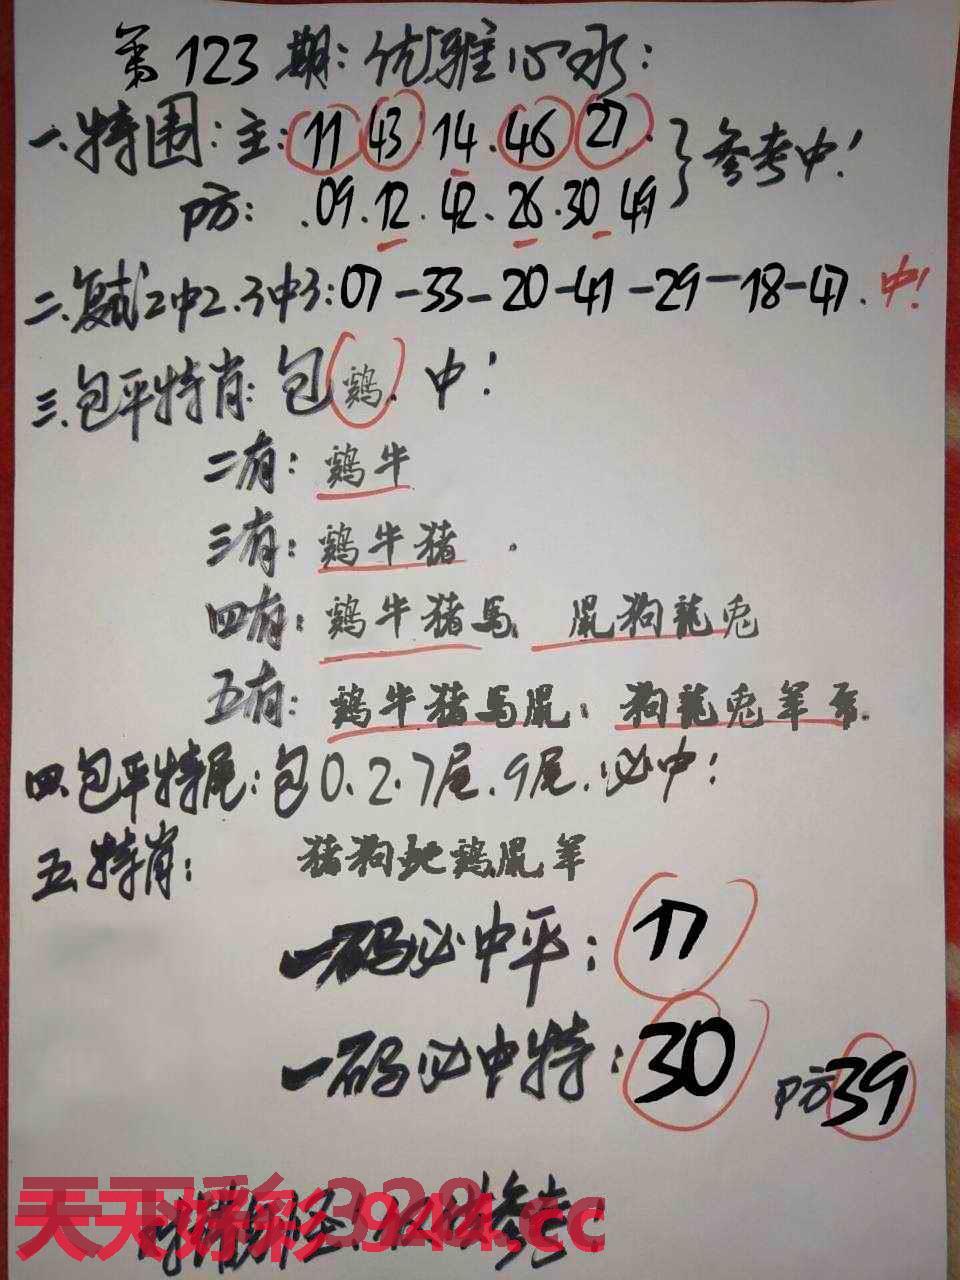 第123期:优雅心水:
一.特围:主:11 43 14.46 27.}参考中!
防:.09.12.42.26.30 49
二.复式2中2.3中3:07-33-20-41-29-18-47.中!
三.包平特肖:包鷄.中!
二有:鷄牛
三有:鷄牛猪.
四有:鷄牛猪馬 鼠狗龍兔
五有:鷄牛猪馬鼠:狗龍兔羊
四.包平特尾:包0.2.7尾.9尾.必中:
五特肖:猪狗蛇鷄鼠羊
一码必中平:17
一码必中特:30 防39
天天好彩 944.cc
参考